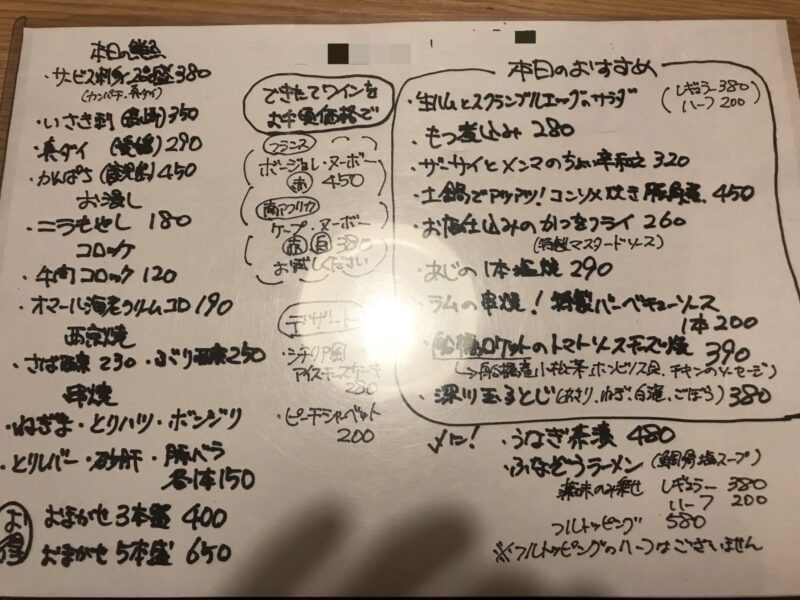 本日の鮮魚
・サービス刺身2点盛 380
(カンパチ・真ダイ)
・いさき刺 (長崎) 350
・真ダイ (愛媛) 290
・かんぱち (鹿児島) 450
お浸し
・ニラもやし 180
コロッケ
・牛肉コロッケ 120
・オマール海老クリームコロ 190
西京焼
・さば西京 230 ・ぶり西京 250
串焼
・ねぎま・とりハツ・ボンジリ
・とりレバー・砂肝・豚ベラ
各1本150
お得
おまかせ3本盛 400
おまかせ5本盛 650
できたてワインを
お手頃価格で
フランス
ボージョレ・ヌーボー
赤 450
南アフリカ
ケープ・ヌーボー
赤 白 380
お試しください
デザート
・シチリア風
アイスチーズケーキ
280
・ピーチシャーベット
200
本日のおすすめ
・生ハムとスクランブルエッグのサラダ (レギュラー380 ハーフ200)
・もつ煮込み 280
・ザーサイとメンマのちょい辛和え 320
・土鍋でアツアツ!コンソメ炊き豚角煮 450
・お店仕込みのかつをフライ 260
(特製マスタードソース)
・あじの1本塩焼 290
・ラムの串焼!特製バーベキューソース
1本200
・船橋ロケットのトマトソースチーズ焼 390
→船橋産小松菜、ホンビノス貝、チキンのソーセージ)
・深川玉子とじ(あさり、ねぎ、白滝、ごぼう) 380
〆に!
・うなぎ茶漬 480
・ふなぞうラーメン (鯛骨塩スープ)
薬味のみ乗せ レギュラー 380
ハーフ 200
フルトッピング 580
※フルトッピングのハーフはございません